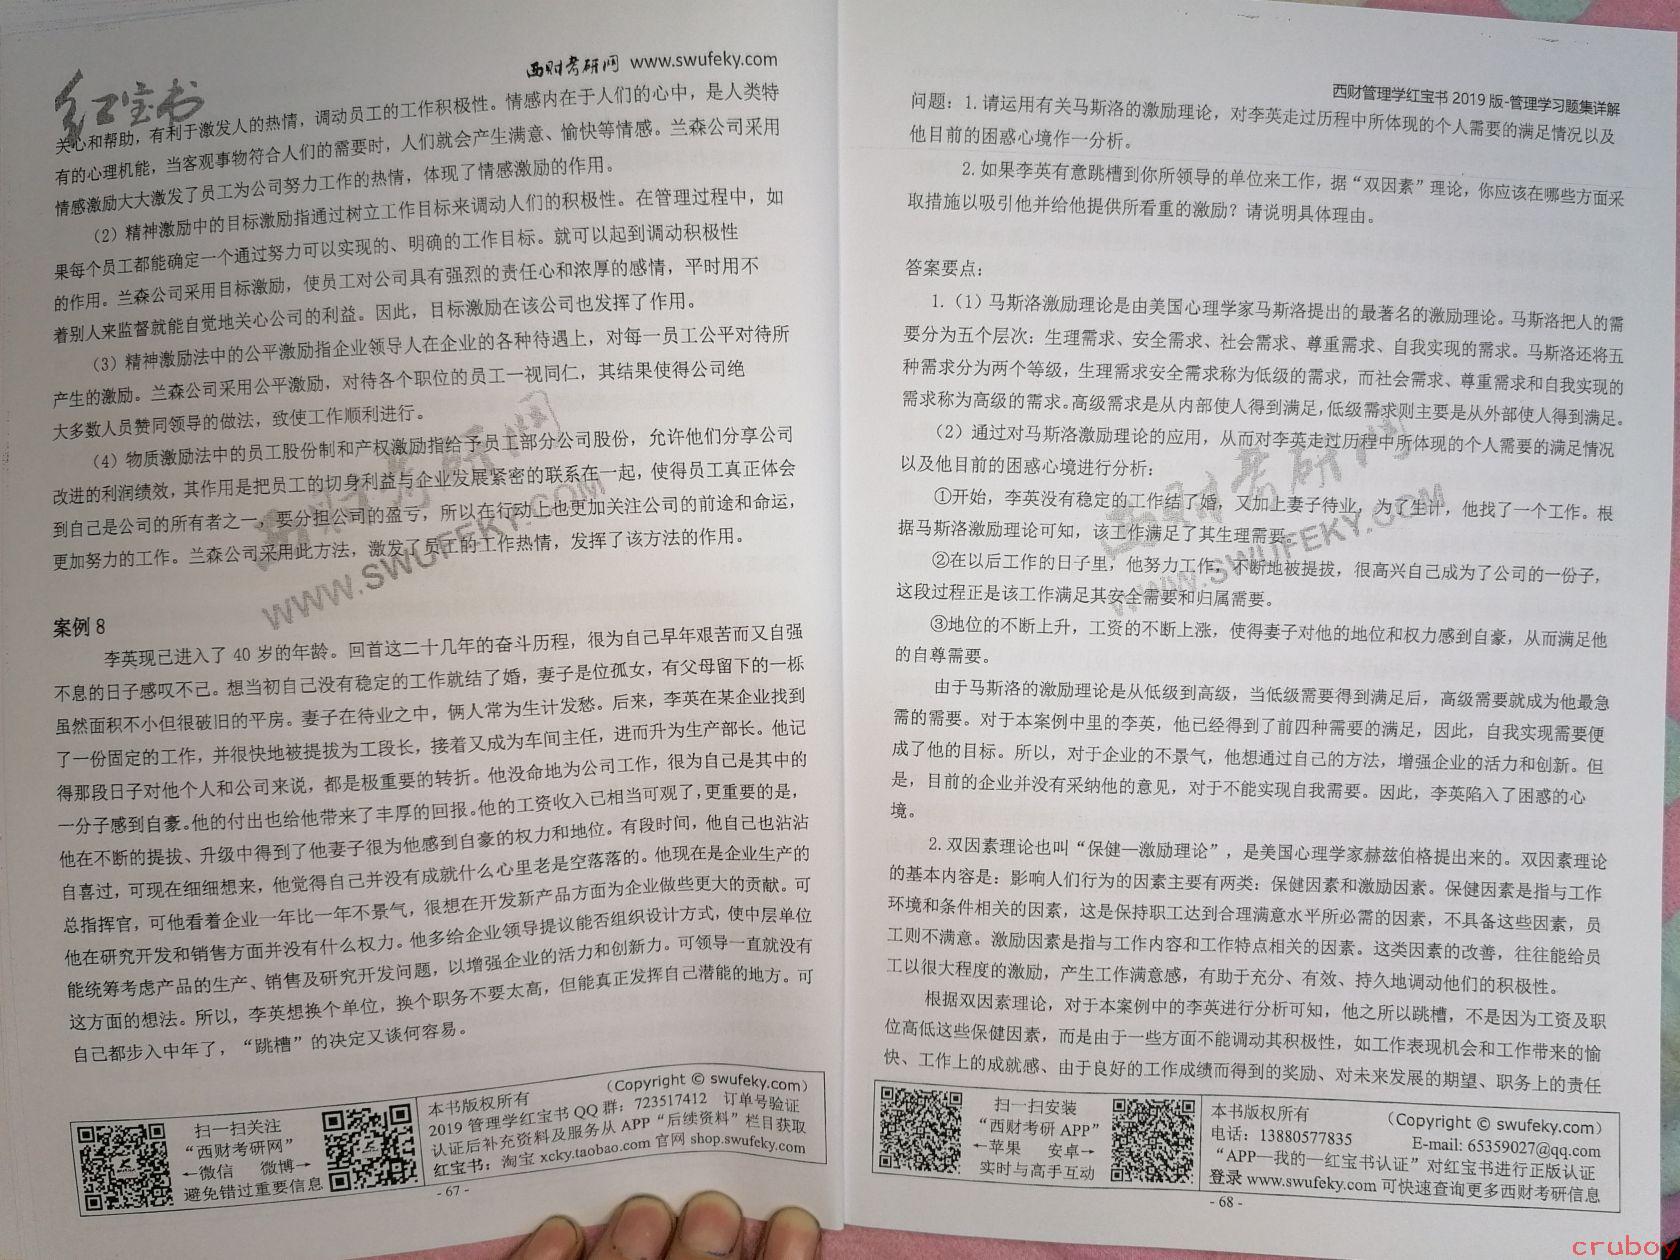 红宝书
西财考研网 www.swufeky.com
关心和帮助，有利于激发人的热情，调动员工的工作积极性。情感内在于人们的心中，是人类特
有的心理机能，当客观事物符合人们的需要时，人们就会产生满意、愉快等情感。兰森公司采用
情感激励大大激发了员工为公司努力工作的热情，体现了情感激励的作用。
（2）精神激励中的目标激励指通过树立工作目标来调动人们的积极性。在管理过程中，如
果每个员工都能确定一个通过努力可以实现的、明确的工作目标。就可以起到调动积极性
的作用。兰森公司采用目标激励，使员工对公司具有强烈的责任心和浓厚的感情，平时用不
着别人来监督就能自觉地关心公司的利益。因此，目标激励在该公司也发挥了作用。
（3）精神激励法中的公平激励指企业领导人在企业的各种待遇上，对每一员工公平对待所
产生的激励。兰森公司采用公平激励，对待各个职位的员工一视同仁，其结果使得公司绝
大多数人员赞同领导的做法，致使工作顺利进行。
（4）物质激励法中的员工股份制和产权激励指给予员工部分公司股份，允许他们分享公司
改进的利润绩效，其作用是把员工的切身利益与企业发展紧密的联系在一起，使得员工真正体会
到自己是公司的所有者之一，要分担公司的盈亏，所以在行动上也更加关注公司的前途和命运，
更加努力的工作。兰森公司采用此方法，激发了员工的工作热情，发挥了该方法的作用。
西财考研网
WWW.SWUFEKY.COM
案例 8
李英现已进入了 40 岁的年龄。回首这二十几年的奋斗历程，很为自己早年艰苦而又自强
不息的日子感叹不已。想当初自己没有稳定的工作就结了婚，妻子是位孤女，有父母留下的一栎
虽然面积不小但很破旧的平房。妻子在待业之中，俩人常为生计发愁。后来，李英在某企业找到
了一份固定的工作，并很快地被提拔为工段长，接着又成为车间主任，进而升为生产部长。他记
得那段日子对他个人和公司来说，都是极重要的转折。他没命地为公司工作，很为自己是其中的
一分子感到自豪。他的付出也给他带来了丰厚的回报。他的工资收入已相当可观了，更重要的是，
他在不断的提拔、升级中得到了他妻子很为他感到自豪的权力和地位。有段时间，他自己也沾沾
自喜过，可现在细细想来，他觉得自己并没有成就什么心里老是空落落的。他现在是企业生产的
总指挥官，可他看着企业一年比一年不景气，很想在开发新产品方面为企业做些更大的贡献。可
他在研究开发和销售方面并没有什么权力。他多给企业领导提议能否组织设计方式，使中层单位
能统筹考虑产品的生产、销售及研究开发问题，以增强企业的活力和创新力。可领导一直就没有
这方面的想法。所以，李英想换个单位，换个职务不要太高，但能真正发挥自己潜能的地方。可
自己都步入中年了，“跳槽”的决定又谈何容易。
扫一扫关注
“西财考研网”
←微信 微博→
避免错过重要信息
本书版权所有 （Copyright © swufeky.com）
2019 管理学红宝书 QQ 群：723517412 订单号验证
认证后补充资料及服务从 APP“后续资料”栏目获取
红宝书：淘宝 xcky.taobao.com 官网 shop.swufeky.com
- 67 -
西财管理学红宝书 2019 版-管理学习题集详解
问题：1.请运用有关马斯洛的激励理论，对李英走过历程中所体现的个人需要的满足情况以及
他目前的困惑心境作一分析。
2.如果李英有意跳槽到你所领导的单位来工作，据“双因素”理论，你应该在哪些方面采
取措施以吸引他并给他提供所看重的激励？请说明具体理由。
答案要点：
1.（1）马斯洛激励理论是由美国心理学家马斯洛提出的最著名的激励理论。马斯洛把人的需
要分为五个层次：生理需求、安全需求、社会需求、尊重需求、自我实现的需求。马斯洛还将五
种需求分为两个等级，生理需求安全需求称为低级的需求，而社会需求、尊重需求和自我实现的
需求称为高级的需求。高级需求是从内部使人得到满足，低级需求则主要是从外部使人得到满足。
（2）通过对马斯洛激励理论的应用，从而对李英走过历程中所体现的个人需要的满足情况
以及他目前的困惑心境进行分析：
①开始，李英没有稳定的工作结了婚，又加上妻子待业，为了生计，他找了一个工作。根
据马斯洛激励理论可知，该工作满足了其生理需要。
②在以后工作的日子里，他努力工作，不断地被提拔，很高兴自己成为了公司的一份子，
这段过程正是该工作满足其安全需要和归属需要。
③地位的不断上升，工资的不断上涨，使得妻子对他的地位和权力感到自豪，从而满足他
的自尊需要。
由于马斯洛的激励理论是从低级到高级，当低级需要得到满足后，高级需要就成为他最急
需的需要。对于本案例中里的李英，他已经得到了前四种需要的满足，因此，自我实现需要便
成了他的目标。所以，对于企业的不景气，他想通过自己的方法，增强企业的活力和创新。但
是，目前的企业并没有采纳他的意见，对于不能实现自我需要。因此，李英陷入了困惑的心
境。
2.双因素理论也叫“保健—激励理论”，是美国心理学家赫兹伯格提出来的。双因素理论
的基本内容是：影响人们行为的因素主要有两类：保健因素和激励因素。保健因素是指与工作
环境和条件相关的因素，这是保持职工达到合理满意水平所必需的因素，不具备这些因素，员
工则不满意。激励因素是指与工作内容和工作特点相关的因素。这类因素的改善，往往能给员
工以很大程度的激励，产生工作满意感，有助于充分、有效、持久地调动他们的积极性。
根据双因素理论，对于本案例中的李英进行分析可知，他之所以跳槽，不是因为工资及职
位高低这些保健因素，而是由于一些方面不能调动其积极性，如工作表现机会和工作带来的愉
快、工作上的成就感、由于良好的工作成绩而得到的奖励、对未来发展的期望、职务上的责任
西财考研网
WWW.SWUFEKY.COM
扫一扫安装
“西财考研 APP”
←苹果 安卓→
实时与高手互动
本书版权所有 （Copyright © swufeky.com）
电话：13880577835 E-mail: 65359027@qq.com
“APP—我的—红宝书认证”对红宝书进行正版认证
登录 www.swufeky.com 可快速查询更多西财考研信息
- 68 -
cruboy